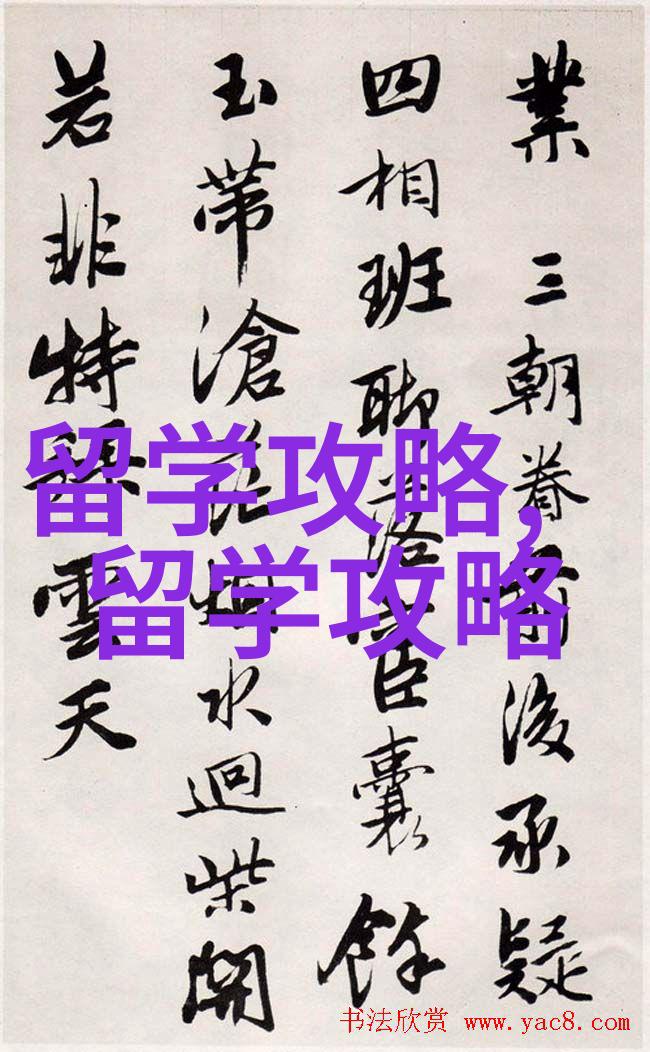 業 三朝眷後承疑
四相班聊落臣囊餘
玉帶滄水迴柴開
若非特雲天
留学攻略,
留学攻略
书法欣赏 www.yac8.com